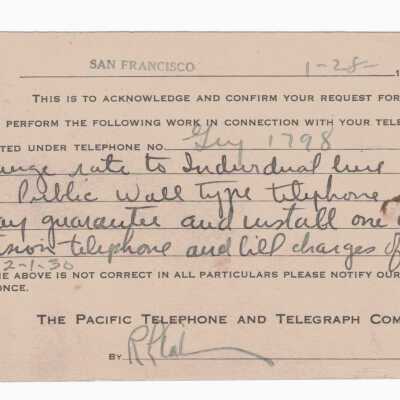 SAN FRANCISCO 1-28- 1
THIS IS TO ACKNOWLEDGE AND CONFIRM YOUR REQUEST FOR
PERFORM THE FOLLOWING WORK IN CONNECTION WITH YOUR TELE
TED UNDER TELEPHONE NO. 1798
ange rate to Individual line
Public Wall type telephone
ay guarantee and install one
sion telephone and bill charges of
2-1-30
E ABOVE IS NOT CORRECT IN ALL PARTICULARS PLEASE NOTIFY OUR
ONCE.
THE PACIFIC TELEPHONE AND TELEGRAPH COM
BY